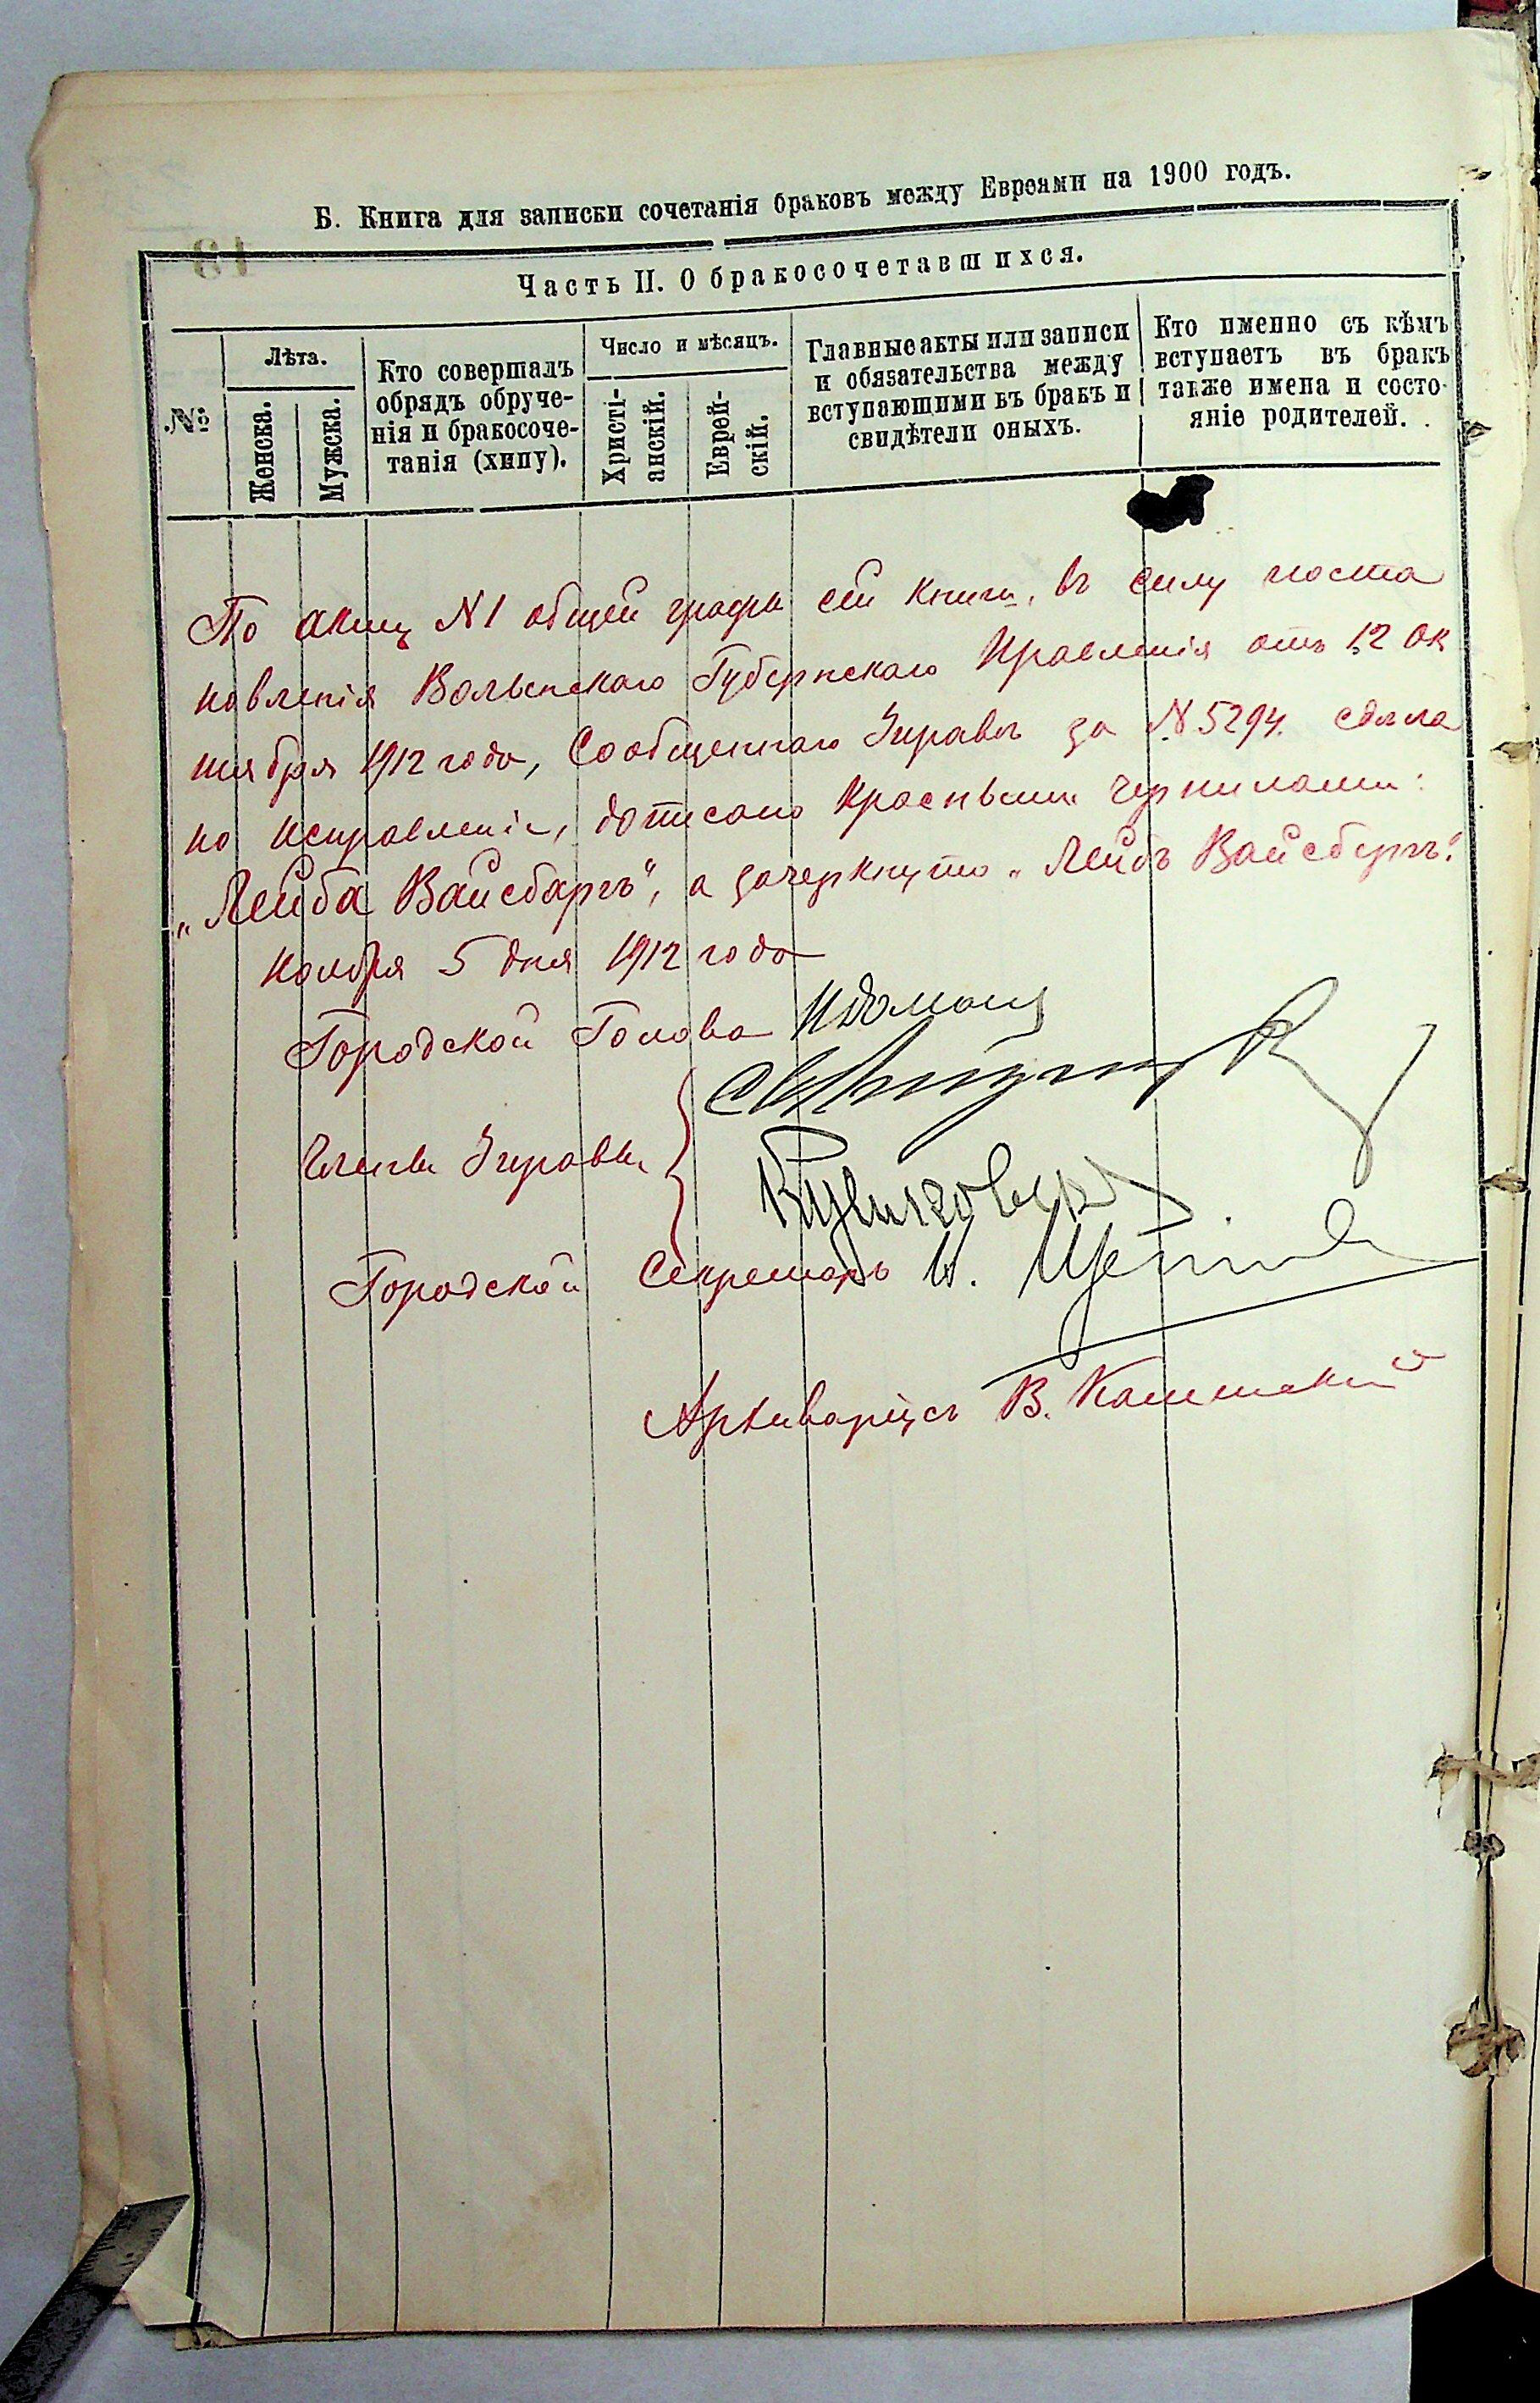 Б. Книга для записки сочетанія браковъ между Евреями на 1900 годъ.
Часть II. О бракосочетавшихся.
№
Лѣта.
Женска.
Мужска.
Кто совершалъ
обрядъ обруче-
нія и бракосоче-
танія (хипу).
Число и мѣсяцъ.
Христі-
анскій.
Еврей-
скій.
Главные акты или записи
и обязательства между
вступающими въ бракъ и
свидѣтели оныхъ.
Кто именно съ кѣмъ
вступаетъ въ бракъ
также имена и состо-
яніе родителей.
По акту N 1 общей графы сей книги, въ силу поста
новленія Волынскаго Губернскаго Правленія отъ 12 ок
тября 1912 года, сообщеннаго Управѣ за N 5294. сдѣла
но исправленіе, дописано красными чернилами:
„Лейба Вайсбаргъ", а зачеркнуто „Лейбъ Вайсбергъ".
Ноября 5 дня 1912 года
Городской Голова
Члены Управы
Городской Секретарь
Архиваріусъ В.